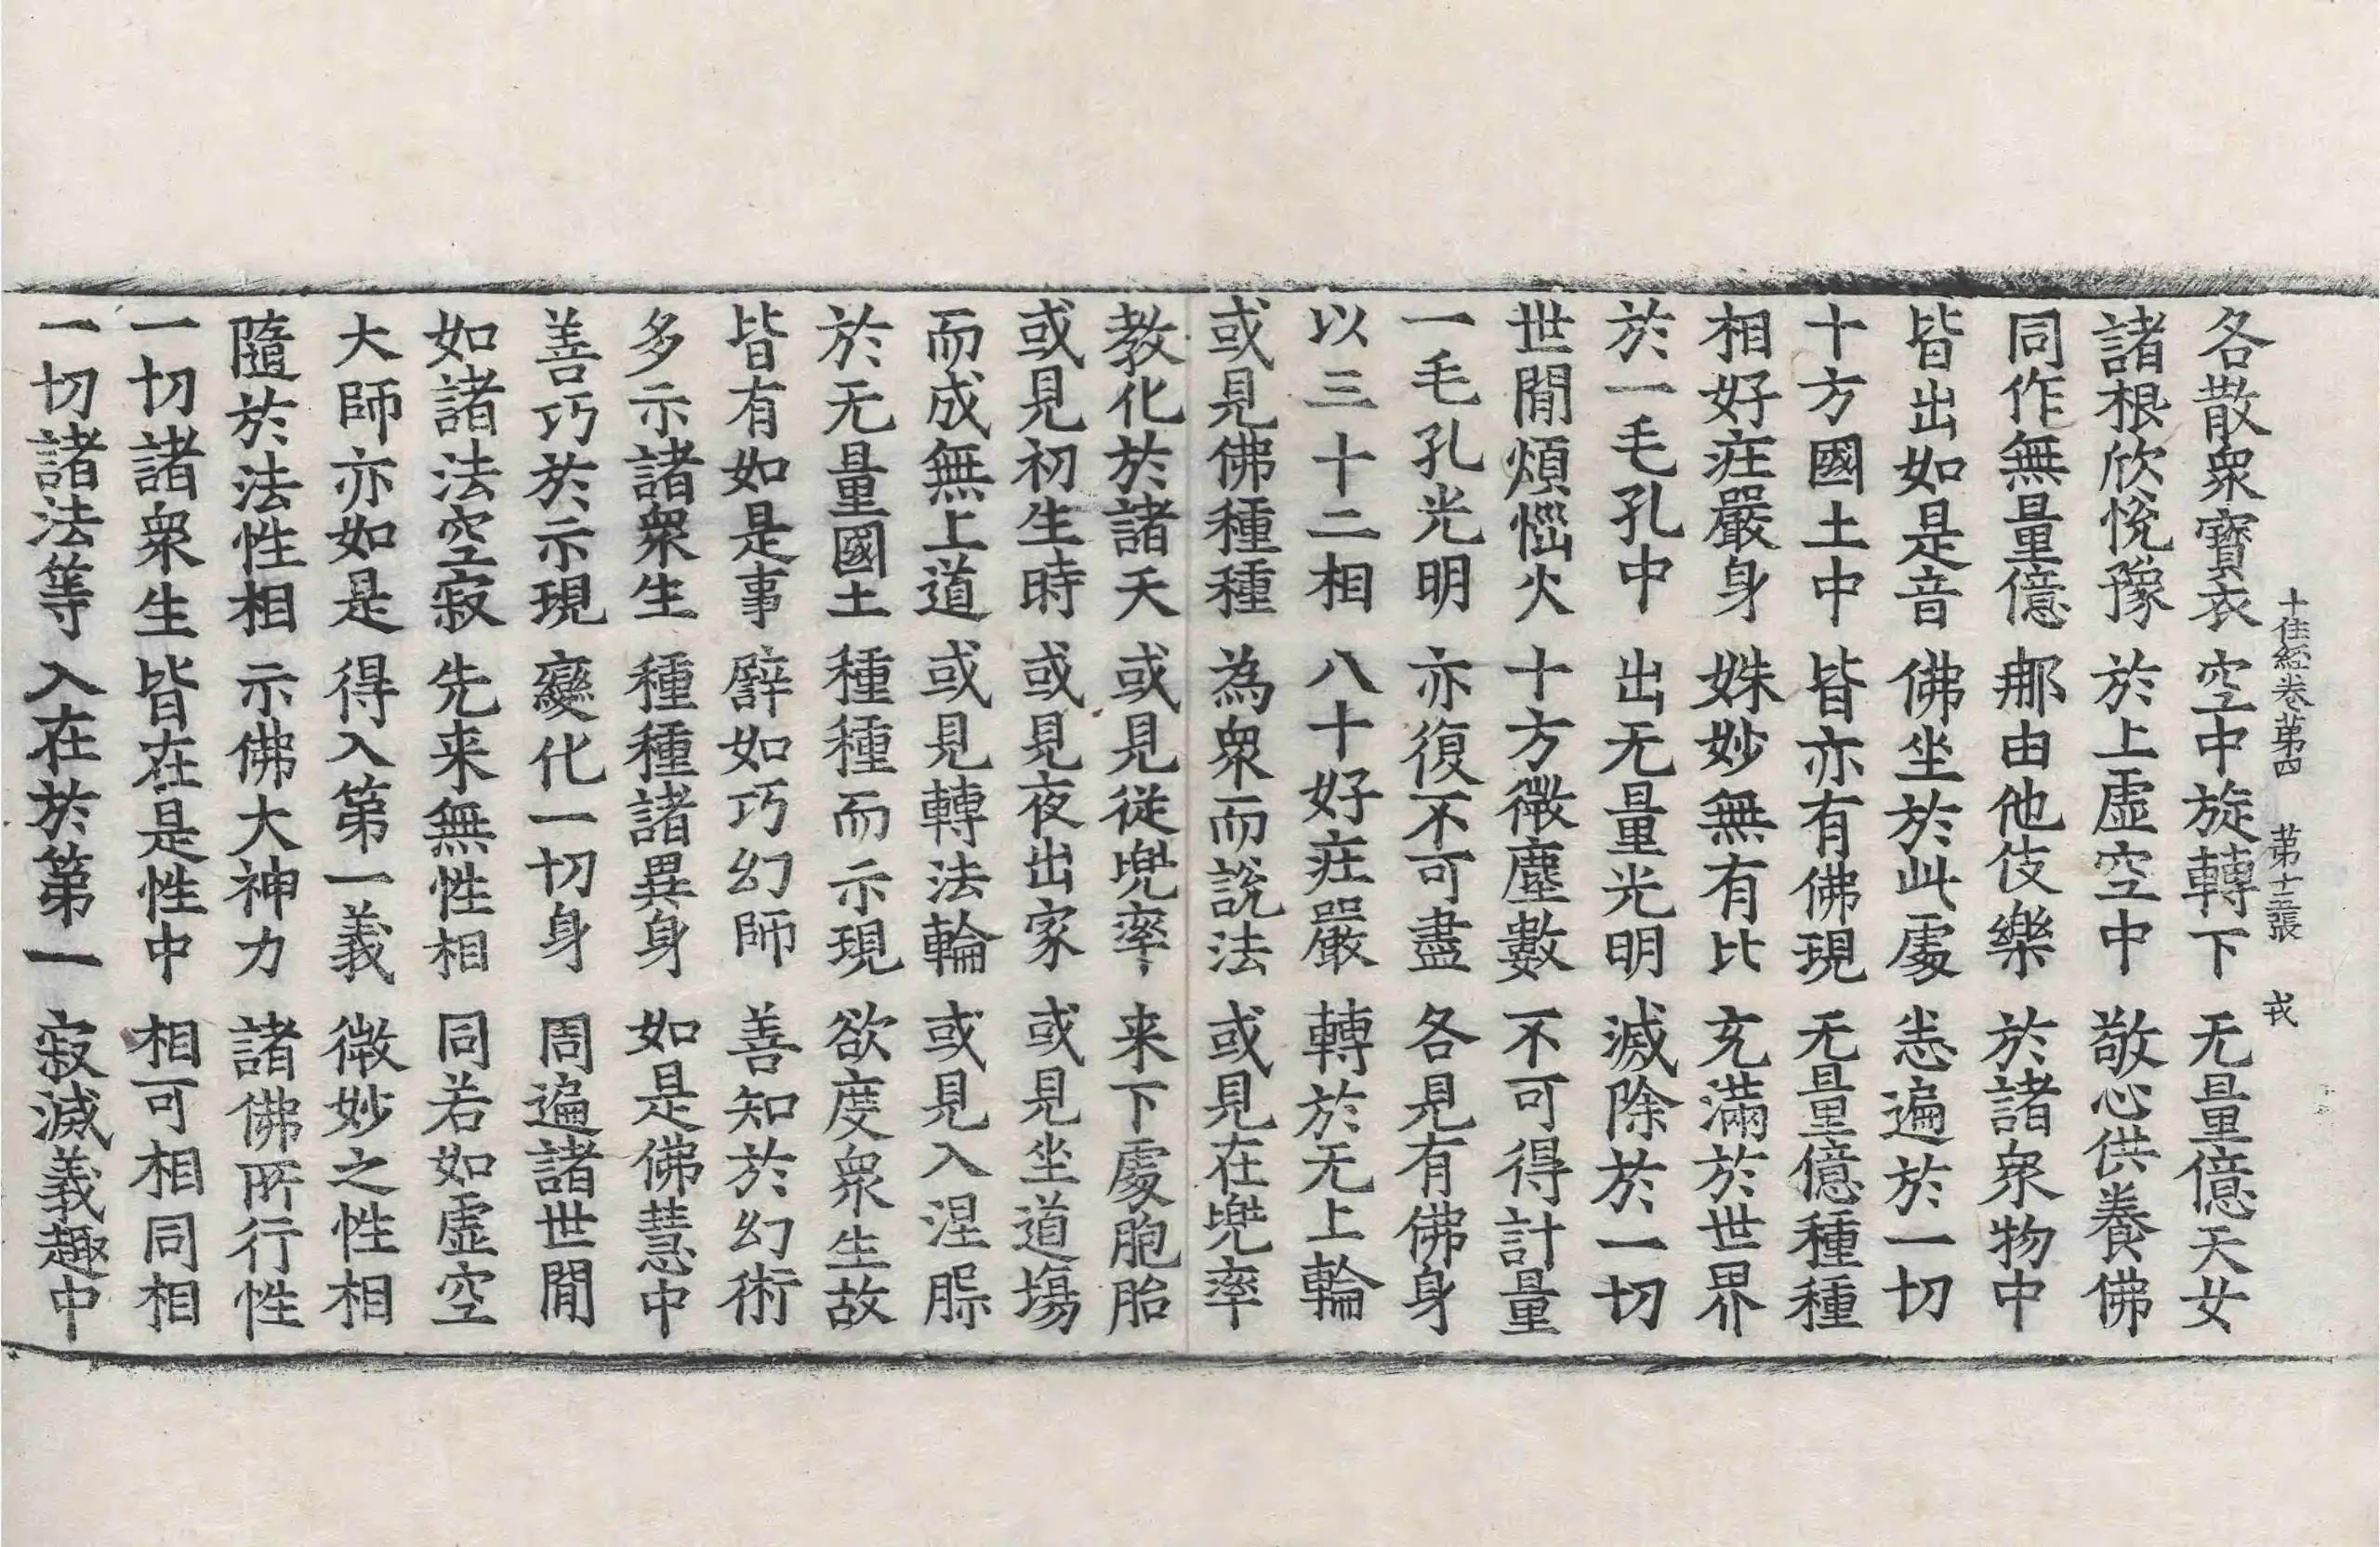 十住經卷第四 第十三張 戎
各散衆寳衣 空中旋轉下 无量億天女
諸根欣恱豫 於上虛空中 敬心供養佛
同作無量億 那由他伎樂 於諸衆物中
皆出如是音 佛坐於此處 悉遍於一切
十方國土中 皆亦有佛現 无量億種種
相好莊嚴身 姝妙無有比 充滿於世界
於一毛孔中 出无量光明 滅除於一切
世閒煩惱火 十方微塵數 不可得計量
一毛孔光明 亦復不可盡 各見有佛身
以三十二相 八十好莊嚴 轉於无上輪
或見佛種種 為衆而說法 或見在兜率
教化於諸天 或見從兜率 来下處胞胎
或見初生時 或見夜出家 或見坐道場
而成無上道 或見轉法輪 或見入涅槃
於无量國土 種種而示現 欲度衆生故
皆有如是事 譬如巧幻師 善知於幻術
多示諸衆生 種種諸異身 如是佛慧中
善巧於示現 變化一切身 周遍諸世閒
如諸法空寂 先来無性相 同若如虛空
大師亦如是 得入第一義 微妙之性相
隨於法性相 示佛大神力 諸佛所行性
一切諸衆生 皆在是性中 相可相同相
一切諸法等 入在於第一 寂滅義趣中